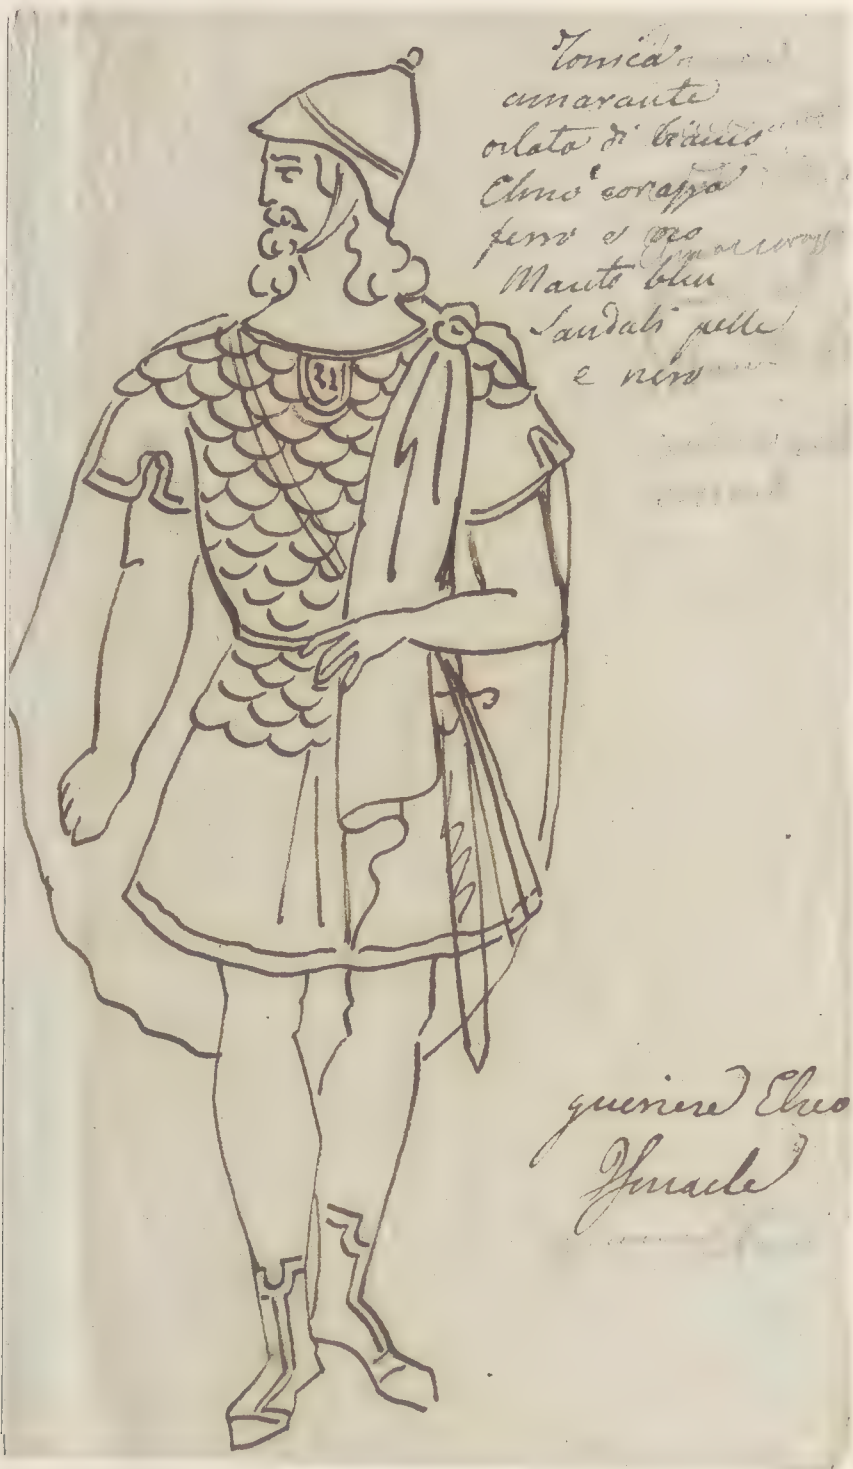 Tonica
amarante
orlata di bianco
Elmo e corazza
ferro e oro
Manto bleu
Sandali pelle
e nero
guerriere Ebreo
Ismaele